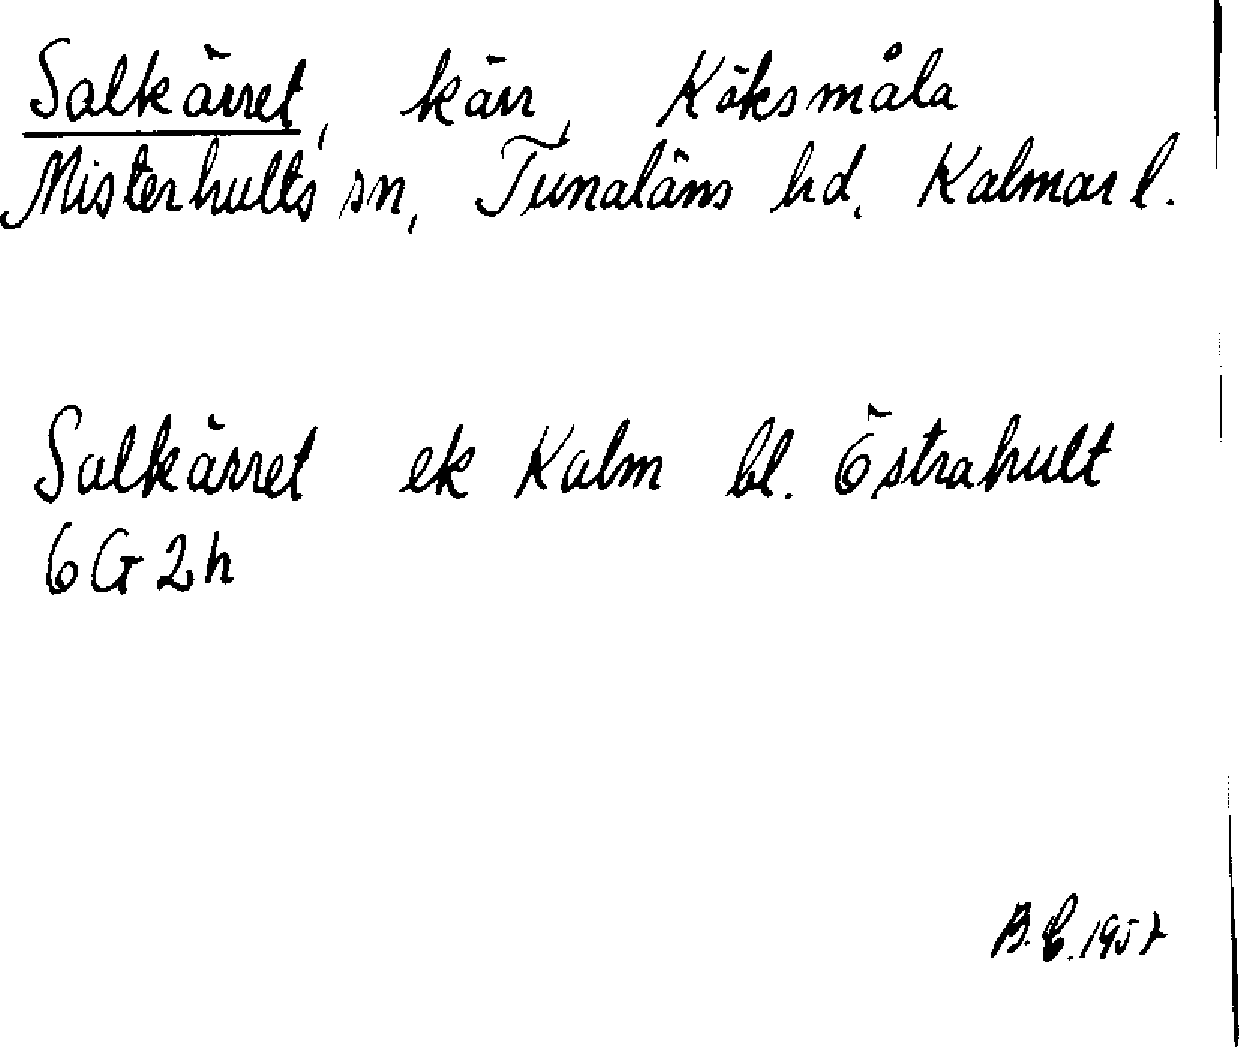 Salkärret, kärr, Köksmåla
Misterhults sn, Tunaläns hd, Kalmar l.
Salkärret ek Kalm bl. Östrahult
6G2h
1957